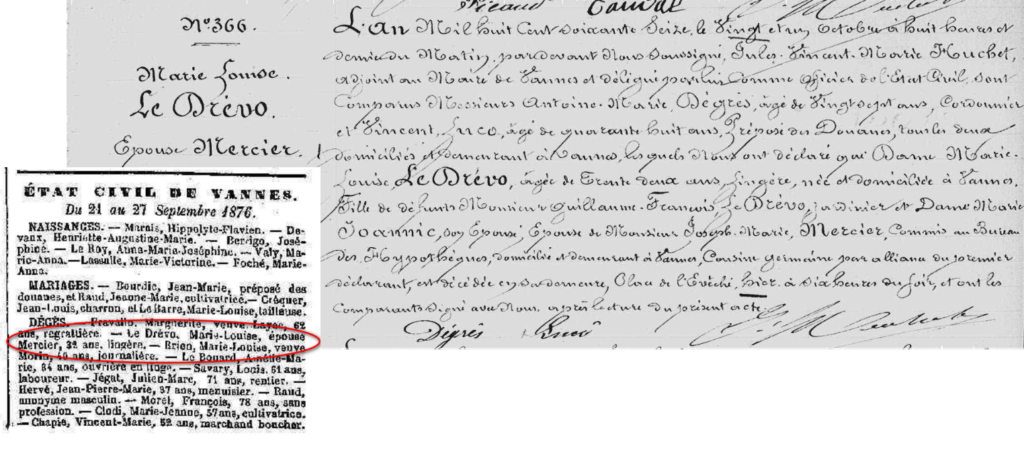 Nº 366.
Marie Louise.
Le Drévo.
Epouse Mercier.
L'An Mil huit Cent Soixante Seize, le Vingt et un Octobre à huit heures et
demie du Matin, pardevant Nous Soussigné, Jules-Vincent-Marie Huchet,
adjoint au Maire de Vannes et délégué par lui Comme Officier de l'Etat Civil, sont
Comparus Messieurs Antoine-Marie, Dégrès, âgé de Vingt Sept ans, Cordonnier
et Vincent, Luco, âgé de quarante huit ans, Préposé des Douanes, tous les deux
domiciliés et demeurant à Vannes, lesquels Nous ont déclaré que Dame Marie-
Louise Le Drévo, âgée de Trente deux ans, Lingère, née et domiciliée à Vannes,
Fille de défunts Monsieur Guillaume-François, Le Drévo, Jardinier et Dame Marie
Joannic, Son Epouse, Epouse de Monsieur Joseph-Marie, Mercier, Commis au Bureau
des Hypothèques, domicilié et demeurant à Vannes, Cousine germaine par alliance du premier
déclarant, est décédée en sa demeure, Place de l'Evêché, hier, à dix heures du soir, et ont les
Comparants Signé avec Nous, après lecture du présent acte.
Dégrès Luco
ÉTAT CIVIL DE VANNES.
Du 21 au 27 Septembre 1876.
NAISSANCES. — Marais, Hippolyte-Flavien. — De-
vaux, Henriette-Augustine-Marie. — Berrigo, José-
phine. — Le Roy, Anna-Marie-Joséphine. — Valy, Ma-
rie-Anna. — Lassalle, Marie-Victorine. — Foché, Marie-
Anna.
MARIAGES. — Bourdic, Jean-Marie, préposé des
douanes, et Raud, Jeanne-Marie, cultivatrice. — Créquer,
Jean-Louis, charron, et Le Barre, Marie-Louise, tailleuse.
DÉCÈS. — Marguerite, veuve 62
ans, regrattière. — Le Drévo, Marie-Louise, épouse
Mercier, 32 ans, lingère. — Brien, Marie-Louise, veuve
Morin, 40 ans, journalière. — Le Bouard, Amélie-Ma-
rie, 34 ans, ouvrière en linge. — Savary, Louis, 61 ans,
laboureur. — Jégat, Julien-Marc, 71 ans, rentier. —
Hervé, Jean-Pierre-Marie, 37 ans, menuisier. — Raud,
anonyme masculin. — Morel, François, 78 ans, sans
profession. — Clodi, Marie-Jeanne, 57 ans, cultivatrice.
— Chapis, Vincent-Marie, 52 ans, marchand boucher.